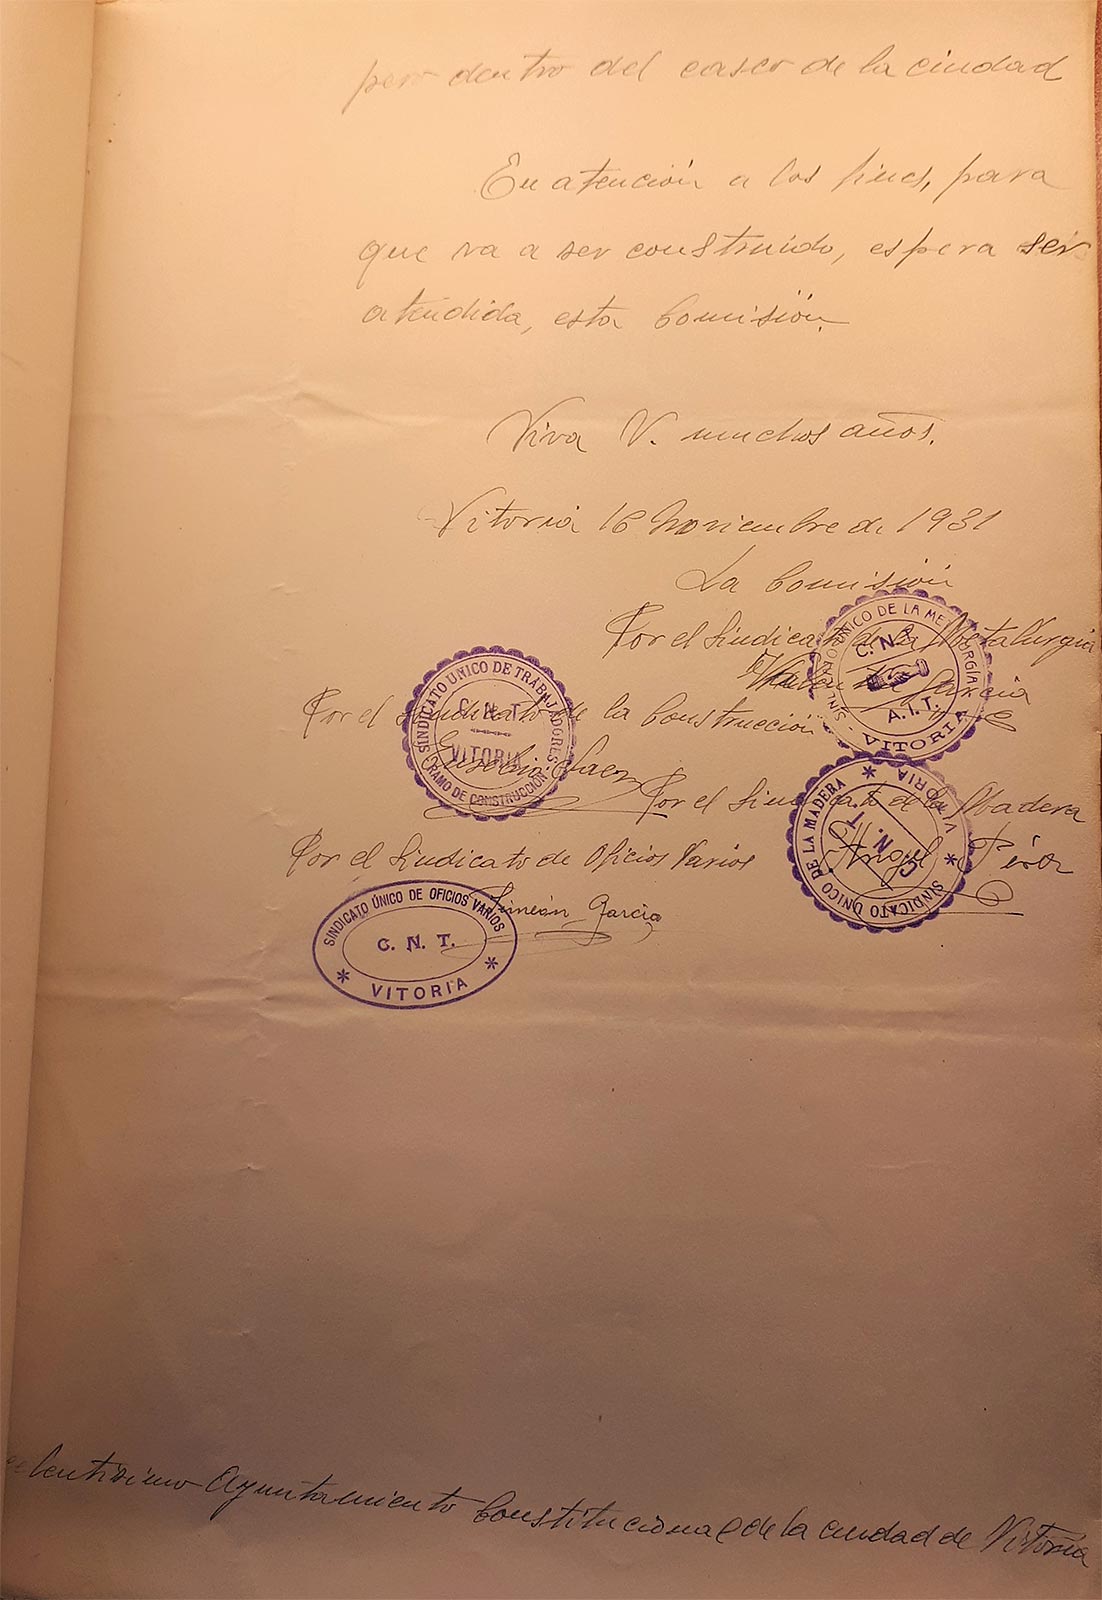 pero dentro del casco de la ciudad
En atención a los fines, para
que va a ser construido, espera ser
atendida, esta Comisión.
Viva V. muchos años.
Vitoria 16 Noviembre de 1931
La Comisión
Por el Sindicato de la Metalurgia
García
SINDICATO ÚNICO DE LA METALURGÍA
C.N.T.
A.I.T.
- VITORIA -
Por el Sindicato de la Construcción
Eusebio Saez
SINDICATO UNICO DE TRABAJADORES
C.N.T.
VITORIA
RAMO DE CONSTRUCCIÓN
Por el Sindicato de la Madera
Angel
SINDICATO UNICO DE LA MADERA * VITORIA *
C.N.T.
Por el Sindicato de Oficios Varios
Simeón García
SINDICATO ÚNICO DE OFICIOS VARIOS
C. N. T.
* VITORIA *
celentisimo Ayuntamiento Constitucional de la ciudad de Vitoria